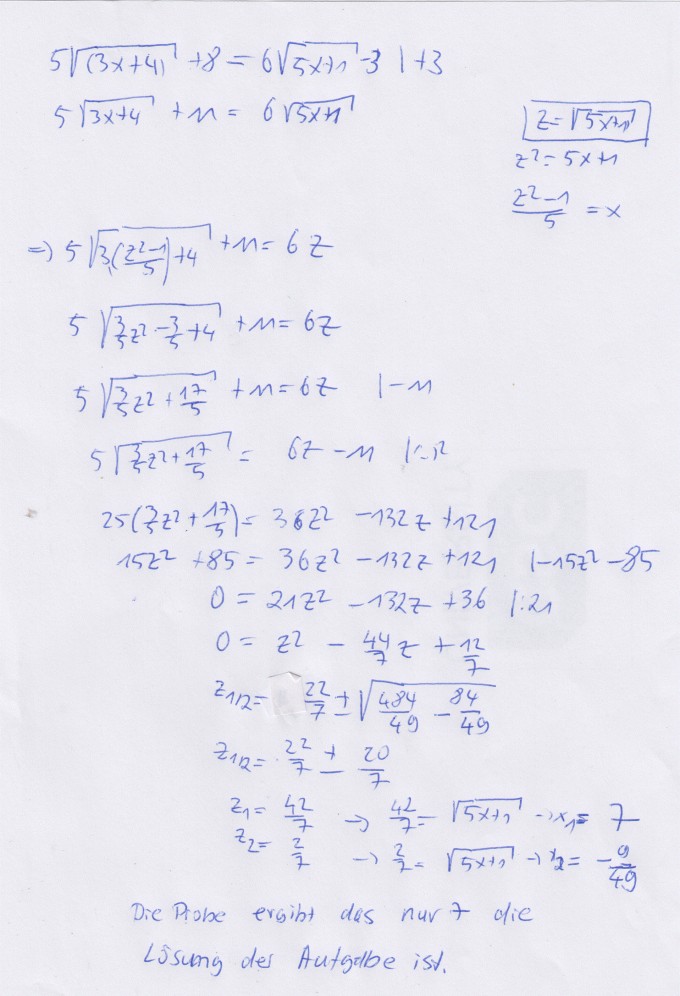 5√(3x+4) +8 = 6√5x+1 -3 |+3
5√3x+4 +11 = 6√5x+1
z=√5x+1
z² = 5x+1
(z²-1)/5 = x
=> 5√3(z²-1/5)+4 +11 = 6z
5√3/5z² - 3/5 + 4 +11 = 6z
5√3/5z² + 17/5 +11 = 6z |-11
5√3/5z² + 17/5 = 6z -11 |:²
25(3/5z² + 17/5) = 36z² -132z +121
15z² +85 = 36z² -132z +121 |-15z² -85
0 = 21z² -132z +36 |:21
0 = z² - 44/7z + 12/7
z1/2 = 22/7 ± √484/49 - 84/49
z1/2 = 22/7 ± 20/7
z1 = 42/7 -> 42/7 = √5x+1 -> x1 = 7
z2 = 2/7 -> 2/7 = √5x+1 -> x2 = -9/49
Die Probe ergibt das nur 7 die
Lösung der Aufgabe ist.